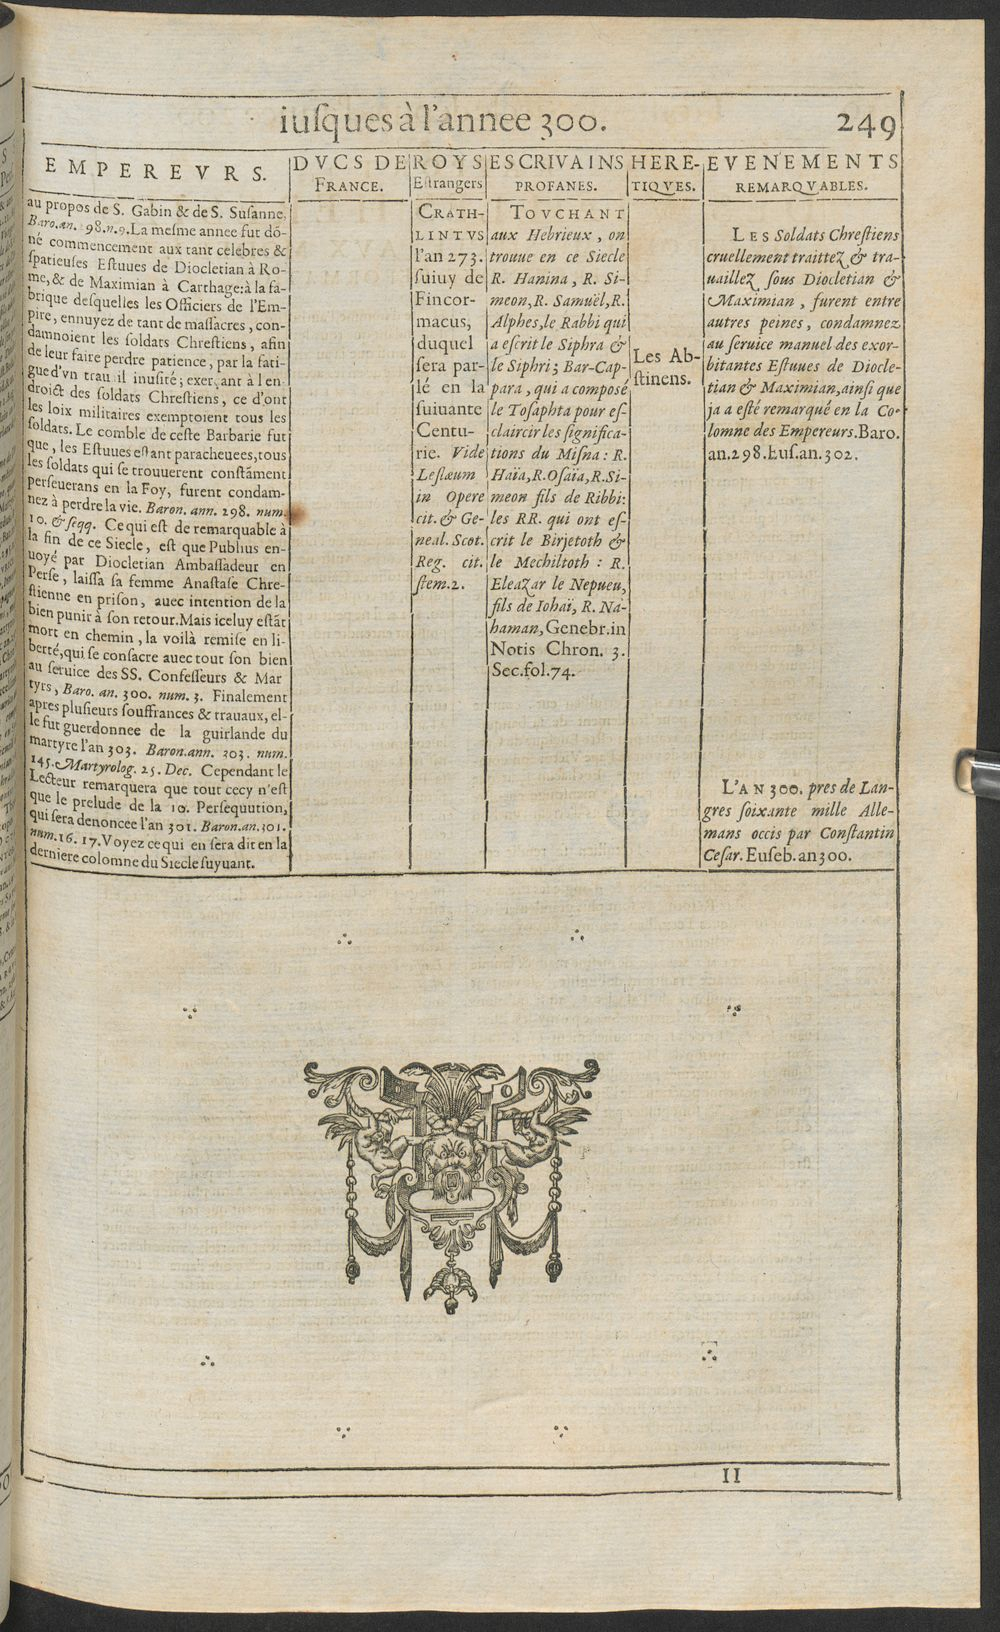 iuſques à l'annee 300.
249
EMPEREVRS.
au propos de S. Gabin & de S. Suſanne.
Baro. an. 298. n. 9. La meſme annee fut dō-
né commencement aux tant celebres &
ſpatieuſes Eſtuues de Diocletian à Ro-
me, & de Maximian à Carthage: à la fa-
brique deſquelles les Officiers de l'Em-
pire, ennuyez de tant de maſſacres, con-
damnoient les ſoldats Chreſtiens, afin
de leur faire perdre patience, par la fati-
gue d'vn trauail inuſité; exerçant à l'en-
droict des ſoldats Chreſtiens, ce d'ont
les loix militaires exemptoient tous les
ſoldats. Le comble de ceſte Barbarie fut
que, les Eſtuues eſtant paracheuees, tous
les ſoldats qui ſe trouuerent conſtāment
perſeuerans en la Foy, furent condam-
nez à perdre la vie. Baron. ann. 298. num.
10. & ſeqq. Ce qui eſt de remarquable à
la fin de ce Siecle, eſt que Publius en-
uoyé par Diocletian Ambaſſadeur en
Perſe, laiſſa ſa femme Anaſtaſe Chre-
ſtienne en priſon, auec intention de la
bien punir à ſon retour. Mais iceluy eſtāt
mort en chemin, la voilà remiſe en li-
berté, qui ſe conſacre auec tout ſon bien
au ſeruice des SS. Confeſſeurs & Mar
tyrs, Baro. an. 300. num. 3. Finalement
apres pluſieurs ſouffrances & trauaux, el-
le fut guerdonnee de la guirlande du
martyre l'an 303. Baron. ann. 303. num.
145. Martyrolog. 25. Dec. Cependant le
Lecteur remarquera que tout cecy n'eſt
que le prelude de la 10. Perſequution,
qui ſera denoncee l'an 301. Baron. an. 301.
num. 16. 17. Voyez ce qui en ſera dit en la
derniere colomne du Siecle ſuyuant.
DVCS DE
FRANCE.
ROYS
Eſtrangers
CRATH-
LINTVS
l'an 273.
ſuiuy de
Fincor-
macus,
duquel
ſera par-
lé en la
ſuiuante
Centu-
rie. Vide
Leſlæum
in Opere
cit. & Ge-
neal. Scot.
Reg. cit.
ſtem. 2.
ESCRIVAINS
PROFANES.
TOVCHANT
aux Hebrieux, on
trouue en ce Siecle
R. Hanina, R. Si-
meon, R. Samuël, R.
Alphes, le Rabbi qui
a eſcrit le Siphra &
le Siphri; Bar-Cap-
para, qui a compoſé
le Toſaphta pour eſ-
claircir les ſignifica-
tions du Miſna: R.
Haïa, R. Oſaïa, R. Si-
meon fils de Ribbi:
les RR. qui ont eſ-
crit le Birjetoth &
le Mechiltoth: R.
Eleazar le Nepueu,
fils de Iohaï, R. Na-
haman, Genebr. in
Notis Chron. 3.
Sec. fol. 74.
HERE-
TIQVES.
Les Ab-
ſtinens.
EVENEMENTS
REMARQVABLES.
LES Soldats Chreſtiens
cruellement traittez & tra-
uaillez ſous Diocletian &
Maximian, furent entre
autres peines, condamnez
au ſeruice manuel des exor-
bitantes Eſtuues de Diocle-
tian & Maximian, ainſi que
ja a eſté remarqué en la Co-
lomne des Empereurs. Baro.
an. 298. Euſ. an. 302.
L'AN 300. pres de Lan-
gres ſoixante mille Alle-
mans occis par Conſtantin
Ceſar. Euſeb. an 300.
II